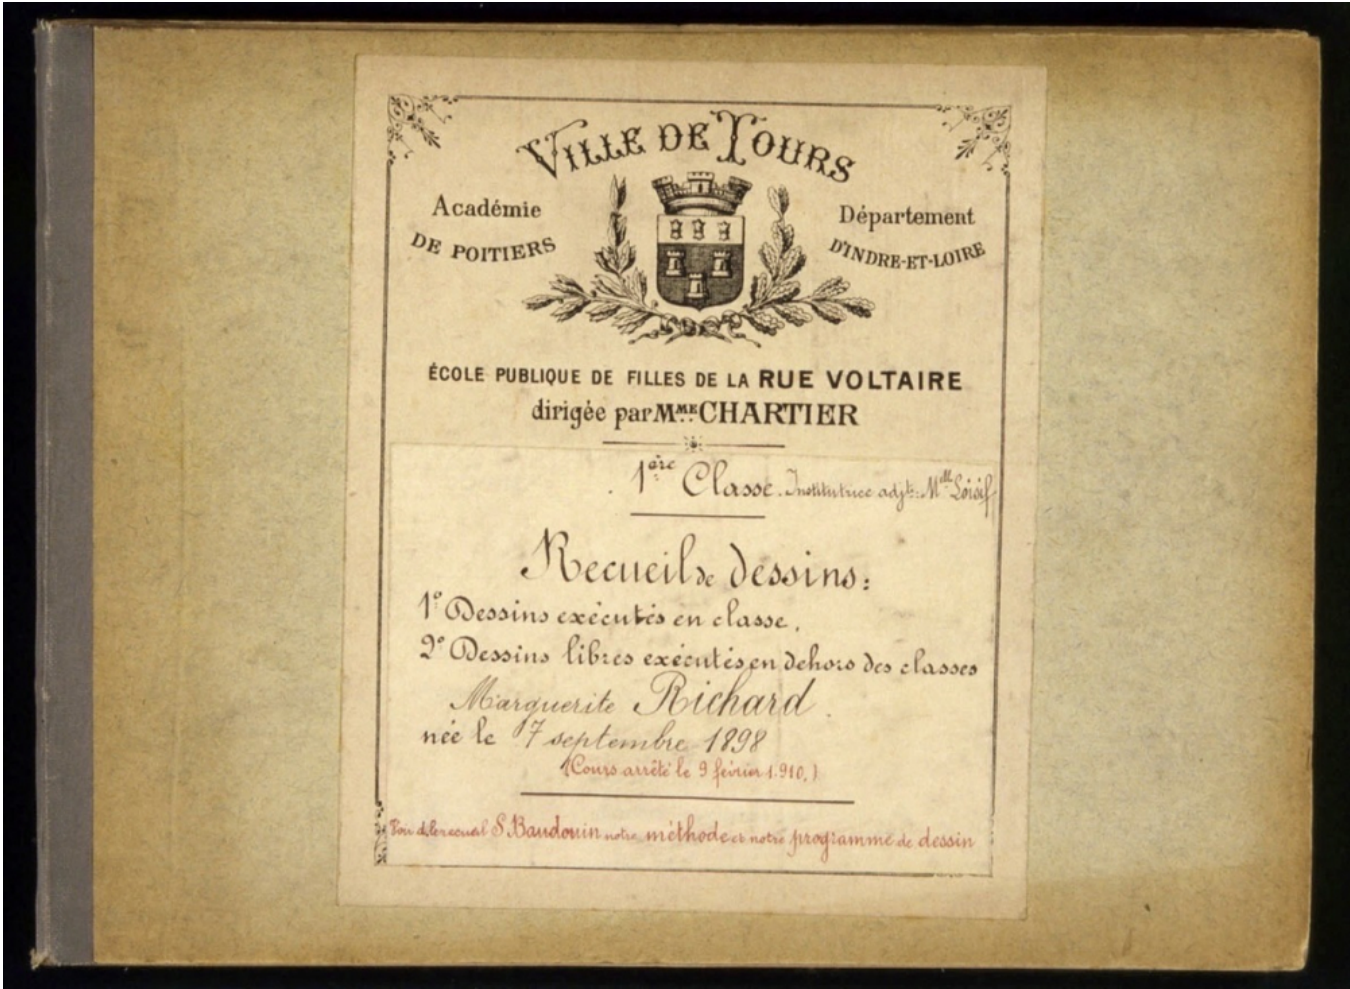 VILLE DE TOURS
Académie
DE POITIERS
Département
D'INDRE-ET-LOIRE
ÉCOLE PUBLIQUE DE FILLES DE LA RUE VOLTAIRE
dirigée par MME CHARTIER
1ère Classe. Institutrice adjte: Mlle
Recueil de dessins:
1° Dessins exécutés en classe.
2° Dessins libres exécutés en dehors des classes
Marguerite Richard
née le 7 septembre 1898
(Cours arrêté le 9 février 1.910.)
Voir ds le recueil S. Baudouin notre méthode et notre programme de dessin